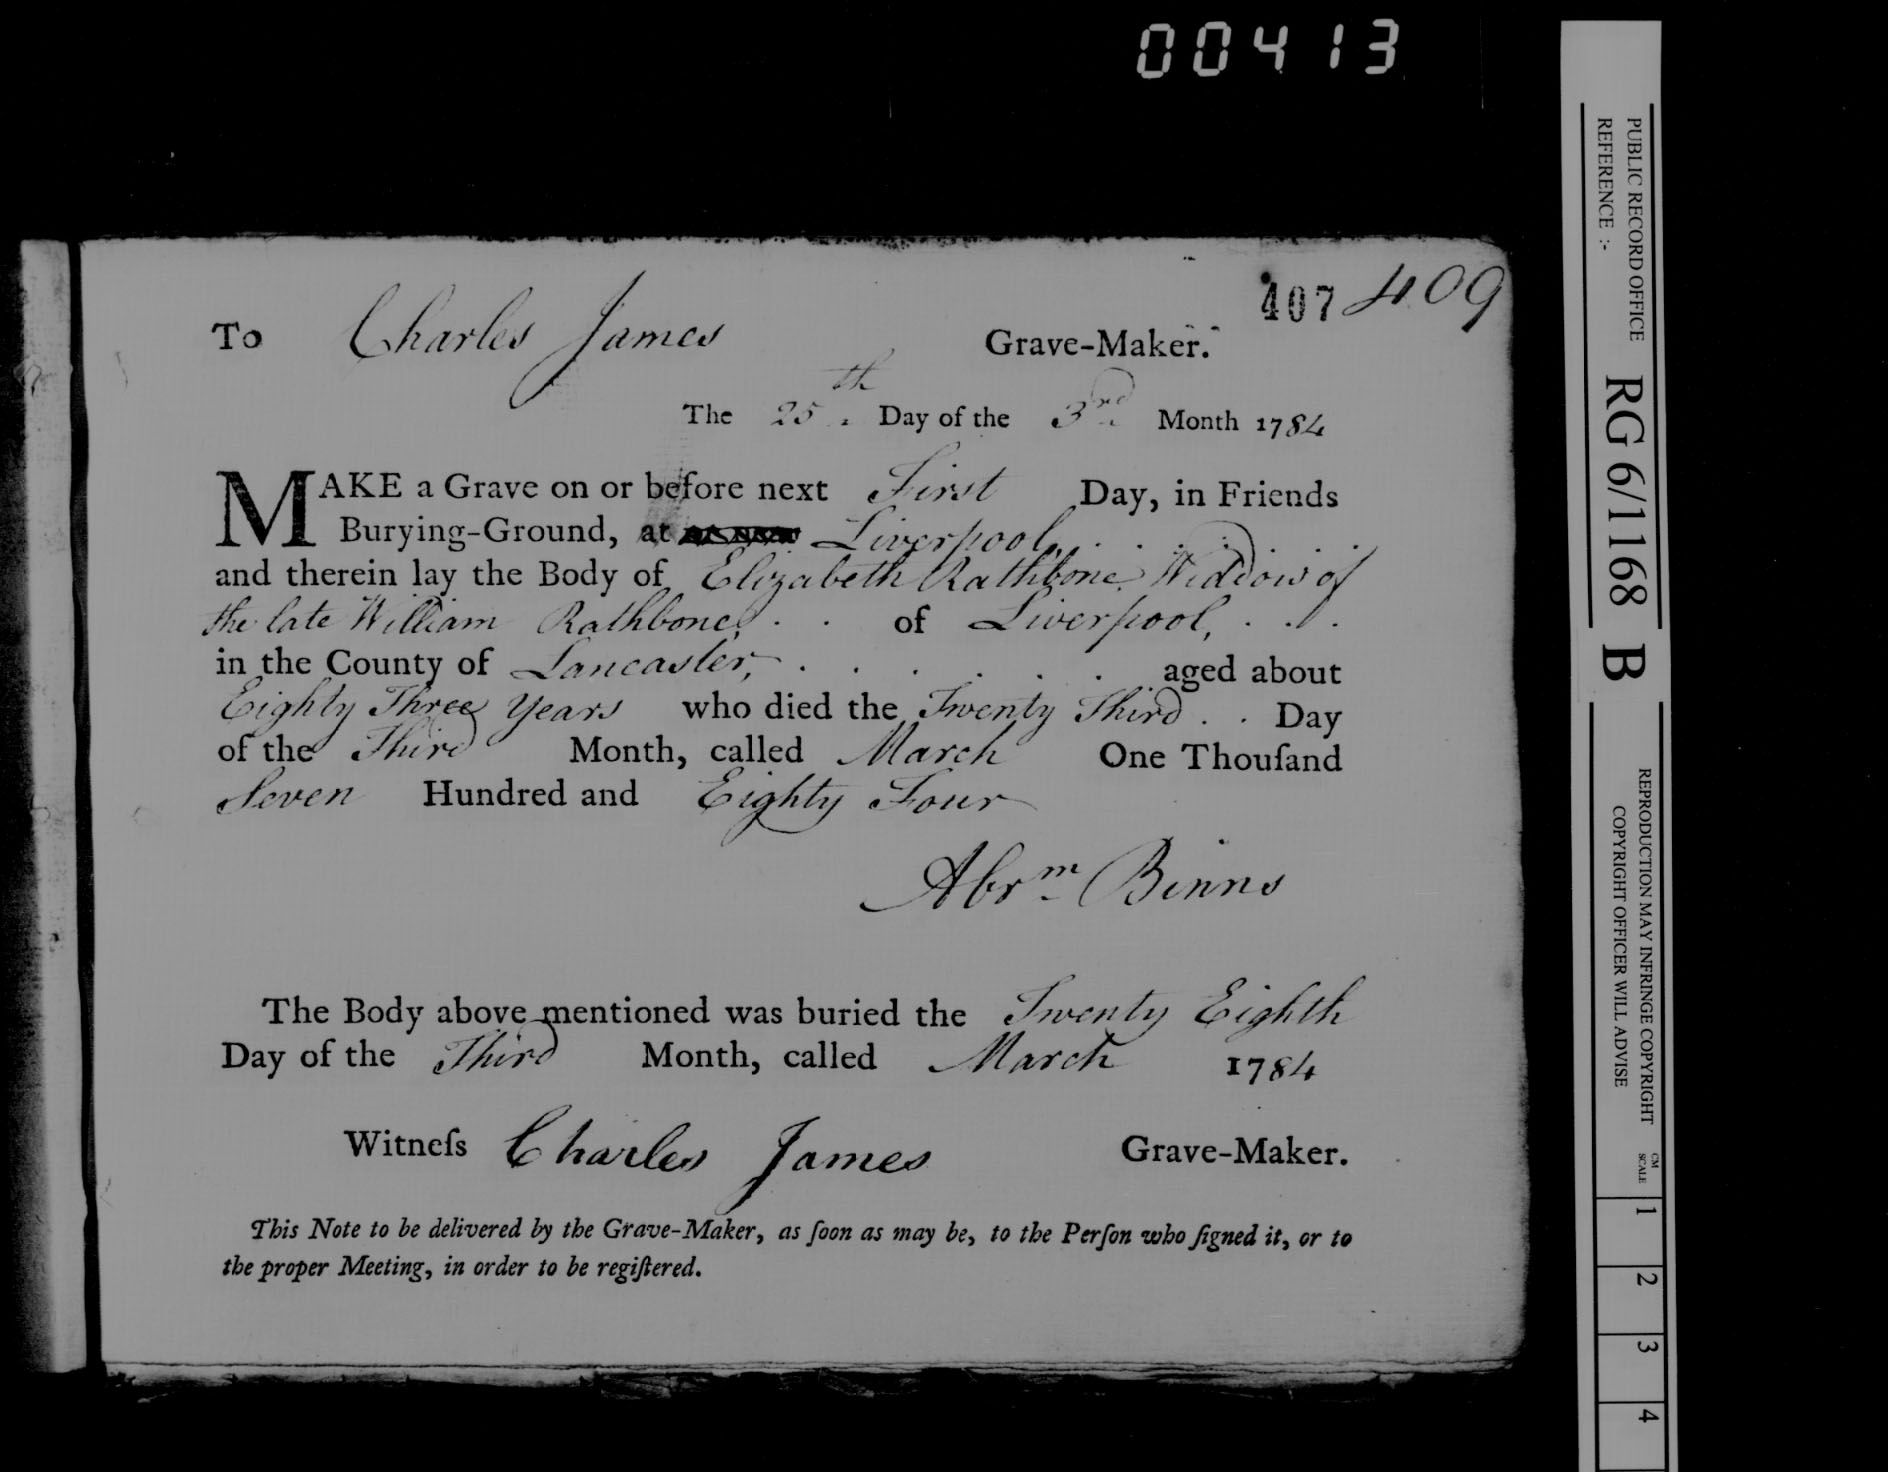 00413
407 409
To Charles James Grave-Maker.
The 25th Day of the 3rd Month 1784
MAKE a Grave on or before next First Day, in Friends
Burying-Ground, at Liverpool,
and therein lay the Body of Elizabeth Rathbone Widdow of
the late William Rathbone, of Liverpool,
in the County of Lancaster, aged about
Eighty Three Years who died the Twenty Third Day
of the Third Month, called March One Thouſand
Seven Hundred and Eighty Four
Abrm Binns
The Body above mentioned was buried the Twenty Eighth
Day of the Third Month, called March 1784
Witneſs Charles James Grave-Maker.
This Note to be delivered by the Grave-Maker, as ſoon as may be, to the Perſon who ſigned it, or to
the proper Meeting, in order to be regiſtered.
PUBLIC RECORD OFFICE
REFERENCE :-
RG 6/1168 B
REPRODUCTION MAY INFRINGE COPYRIGHT
COPYRIGHT OFFICER WILL ADVISE
CM
SCALE
1
2
3
4